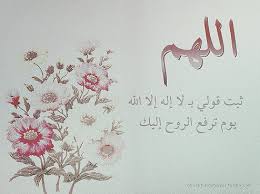 اللهم
ثبت قولي بـ لا إله إلا الله
يوم ترفع الروح إليك